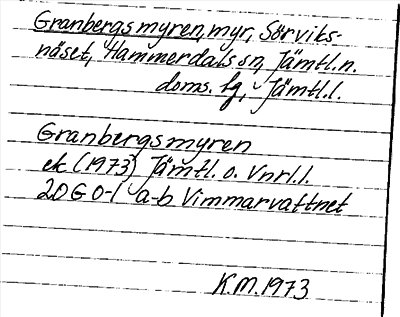 Granbergsmyren, myr, Sörviks-
näset, Hammerdals sn, Jämtl.n.
doms. hg, Jämtl.l.
Granbergsmyren
ek (1973) Jämtl. o. Vnrl.l.
20G 0-1 a-b Vimmarvattnet
K.M. 1973